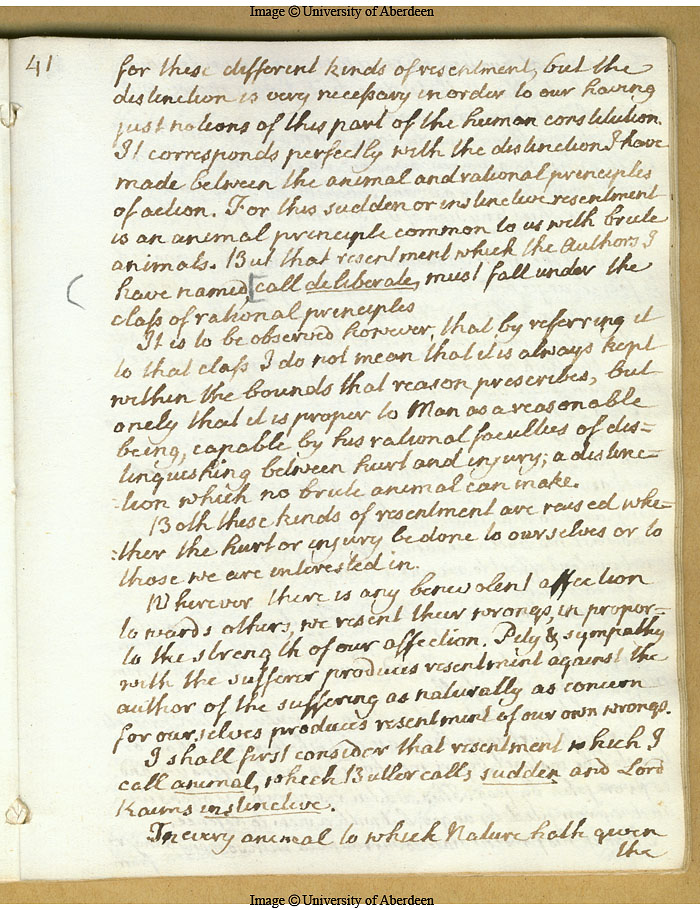 Image © University of Aberdeen
41
for these different kinds of resentment, but the
distinction is very necessary in order to our having
just notions of this part of the human constitution.
It corresponds perfectly with the distinction I have
made between the animal and rational principles
of action. For this sudden or instinctive resentment
is an animal principle common to us with brute
animals. But that resentment which the Authors I
( have named [call deliberate, must fall under the
class of rational principles
It is to be observed however, that by referring it
to that class I do not mean that it is always kept
within the bounds that reason prescribes, but
onely that it is proper to Man as a reasonable
being, capable by his rational faculties of dis=
tinguishing between hurt and injury; a distinc=
:tion which no brute animal can make.
Both these kinds of resentment are raised whe=
:ther the hurt or injury be done to ourselves or to
those we are interested in.
Wherever there is any benevolent affection
towards others, we resent their wrongs, in propor=
to the strength of our affection. Pity & sympathy
with the sufferer produces resentment against the
author of the suffering as naturally as concern
for ourselves produces resentment of our own wrongs.
I shall first consider that resentment which I
call animal, which Butler calls sudden and Lord
Kaims instinctive.
In every animal to which Nature hath given
the
Image © University of Aberdeen